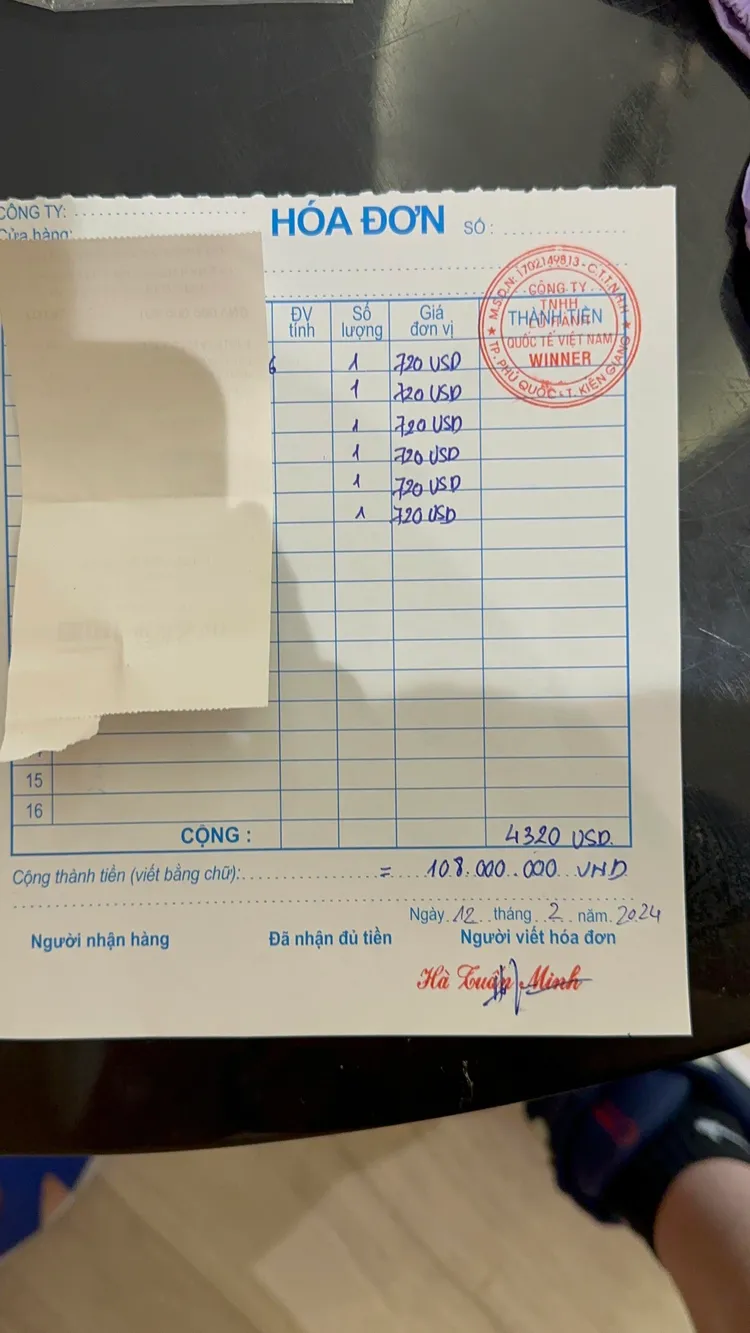 CÔNG TY:
Cửa hàng:
HÓA ĐƠN SỐ:
ĐV tính Số lượng Giá đơn vị THÀNH TIỀN
M.S.D.N: 1702149813 - C.T.T.N.H.H
CÔNG TY
TNHH
QUỐC TẾ VIỆT NAM
WINNER
TP. PHÚ QUỐC - T. KIÊN GIANG
6 1 720 USD
1 720 USD
1 720 USD
1 720 USD
1 720 USD
1 720 USD
15
16
CỘNG : 4320 USD.
Cộng thành tiền (viết bằng chữ): = 108.000.000 VND
Ngày 12 tháng 2 năm 2024
Người nhận hàng Đã nhận đủ tiền Người viết hóa đơn
Hà Tuấn Minh